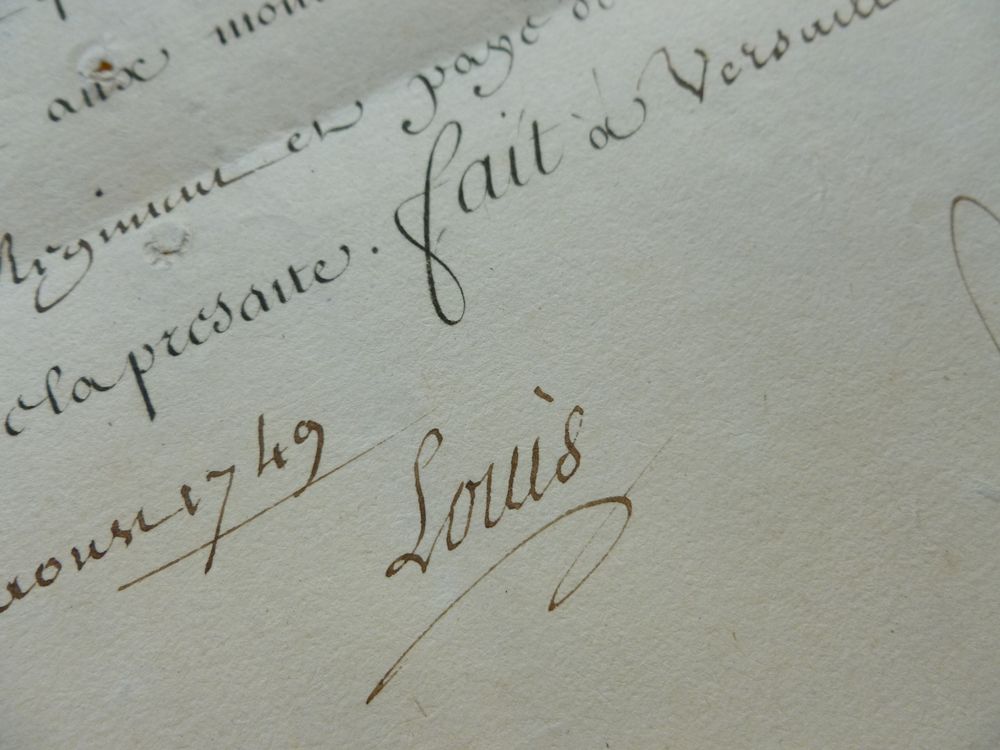 aux mon
Regiment et payé
la presante. fait à Versaill
aoust 1749
Louis